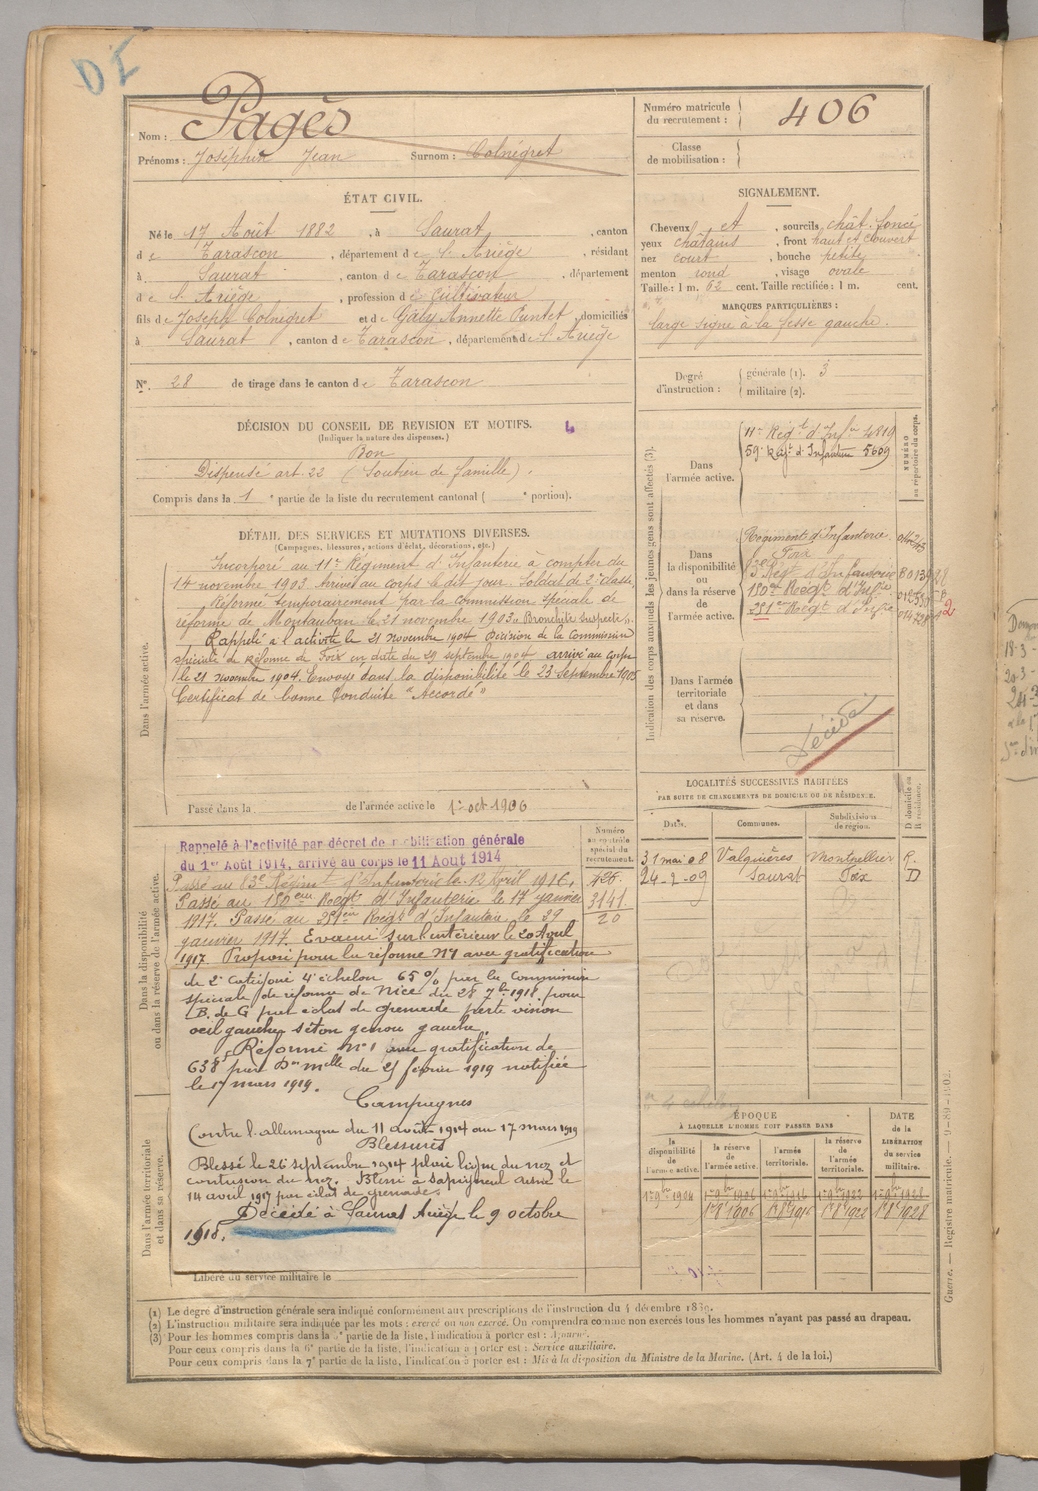 Nom : Pagès
Prénoms : Joséphin Jean Surnom : Colnégret
Numéro matricule du recrutement : 406
Classe de mobilisation :
ÉTAT CIVIL.
Né le 17 Août 1882, à Saurat, canton
de Tarascon, département de l'Ariège, résidant
à Saurat, canton de Tarascon, département
de l'Ariège, profession de Cultivateur
fils de Joseph Colnégret et de Galy Annette Puntet, domiciliés
à Saurat, canton de Tarascon, département de l'Ariège
N°. 28 de tirage dans le canton de Tarascon
SIGNALEMENT.
Cheveux et, sourcils chât. foncé
yeux châtains, front haut et couvert
nez court, bouche petite
menton rond, visage ovale
Taille : 1 m. 62 cent. Taille rectifiée : 1 m. cent.
MARQUES PARTICULIÈRES :
large signe à la fesse gauche.
Degré d'instruction : générale (1). 3
militaire (2).
DÉCISION DU CONSEIL DE REVISION ET MOTIFS.
(Indiquer la nature des dispenses.)
Bon
Dispensé art 22 (Soutien de famille).
Compris dans la 1e partie de la liste du recrutement cantonal ( e portion).
DÉTAIL DES SERVICES ET MUTATIONS DIVERSES.
(Campagnes, blessures, actions d'éclat, décorations, etc.)
Dans l'armée active.
Incorporé au 11e Régiment d'Infanterie à compter du
14 novembre 1903 Arrivé au corps le dit jour. Soldat de 2e classe
Réformé temporairement par la commission spéciale de
réforme de Montauban le 21 novembre 1903 Bronchite suspecte.
Rappelé à l'activité le 21 novembre 1904 Décision de la Commission
spéciale de réforme de Foix en date du 29 septembre 1904 arrivé au corps
le 21 novembre 1904. Envoyé dans la disponibilité le 23 Septembre 1905
Certificat de bonne Conduite "Accordé"
Passé dans la de l'armée active le 1er oct 1906
Indication des corps auxquels les jeunes gens sont affectés (3).
NUMÉRO au répertoire du corps.
Dans l'armée active.
11e Régt d'Infie 4819
59e Régt d'Infanterie 5609
Dans la disponibilité ou dans la réserve de l'armée active.
Régiment d'Infanterie
de Foix
3e Régt d'Infanterie
150e Régt d'Infie
251e Régt d'Infie
Dans l'armée territoriale et dans sa réserve.
Décédé
Dans la disponibilité ou dans la réserve de l'armée active.
Numéro au contrôle spécial du recrutement.
Rappelé à l'activité par décret de mobilisation générale
du 1er Août 1914, arrivé au corps le 11 Août 1914
Passé au 3e Régiment d'Infanterie le 12 Avril 1916,
Passé au 150eme Régt d'Infanterie le 17 janvier 3141
1917. Passé au 251eme Régt d'Infanterie le 29 20
janvier 1917. Evacué sur l'intérieur le 20 Avril
1917 Proposé pour la réforme N°1 avec gratification
de 2e catégorie 4e échelon 65% par la Commission
spéciale de réforme de Nice du 28 7bre 1918 pour
B. de G par éclat de grenade perte vision
oeil gauche, séton genou gauche.
Réformé n°1 avec gratification de
638f par Don mlle du 25 février 1919 notifiée
le 17 mars 1919.
Campagnes
Contre l'allemagne du 11 août 1914 au 17 mars 1919
Blessures
Blessé le 26 septembre 1914 plaie ligne du nez et
contusion du nez. Blessé à Sapigneul Aisne le
14 avril 1917 par éclat de grenade.
Décédé à Saurat Ariège le 9 octobre
1918.
Dans l'armée territoriale et dans sa réserve.
Libéré du service militaire le
LOCALITÉS SUCCESSIVES HABITÉES
PAR SUITE DE CHANGEMENTS DE DOMICILE OU DE RÉSIDENCE.
Dates. Communes. Subdivisions de région. D domicile ou R résidence.
31 mai 08 Valquières Montpellier R.
24-2-09 Saurat Foix D
ÉPOQUE
À LAQUELLE L'HOMME DOIT PASSER DANS
DATE de la LIBÉRATION du service militaire.
la disponibilité de l'armée active. la réserve de l'armée active. l'armée territoriale. la réserve de l'armée territoriale.
1er 9bre 1904 1er 9bre 1906 1er 9bre 1916 1er 9bre 1922 1er 9bre 1928
1er 8bre 1906 1er 8bre 1916 1er 8bre 1922 1er 8bre 1928
(1) Le degré d'instruction générale sera indiqué conformément aux prescriptions de l'instruction du 4 décembre 1889.
(2) L'instruction militaire sera indiquée par les mots : exercé ou non exercé. On comprendra comme non exercés tous les hommes n'ayant pas passé au drapeau.
(3) Pour les hommes compris dans la 5e partie de la liste, l'indication à porter est : Ajourné.
Pour ceux compris dans la 6e partie de la liste, l'indication à porter est : Service auxiliaire.
Pour ceux compris dans la 7e partie de la liste, l'indication à porter est : Mis à la disposition du Ministre de la Marine. (Art. 4 de la loi.)